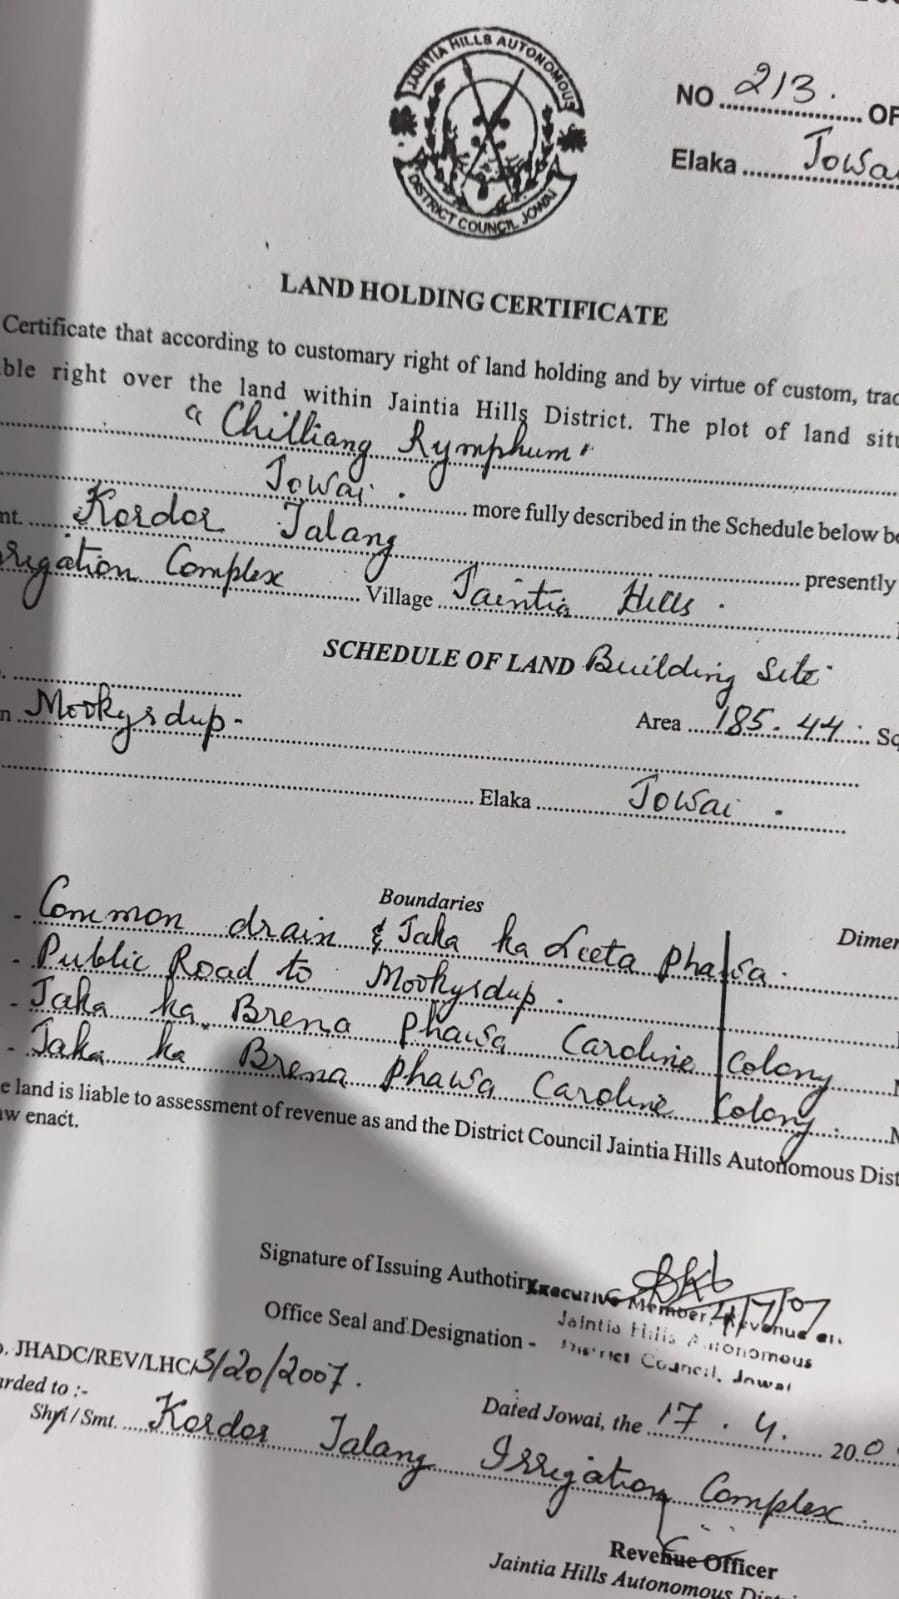 JAINTIA HILLS AUTONOMOUS
DISTRICT COUNCIL JOWAI
NO 213. OF
Elaka Jowai
LAND HOLDING CERTIFICATE
Certificate that according to customary right of land holding and by virtue of custom, trad
ble right over the land within Jaintia Hills District. The plot of land situ
"Chilliang Rymphum"
Jowai. more fully described in the Schedule below be
nt. Kordor Talang presently
rrigation Complex Village Jaintia Hills.
SCHEDULE OF LAND Building Site
n Mookyrdup- Area 185.44 Sq
Elaka Jowai.
Boundaries
Dimen
- Common drain & Jaka ka Leeta phawa.
- Public Road to Mookyrdup.
- Jaka ka Brena phawa Caroline Colony
- Jaka ka Brena phawa Caroline Colony.
e land is liable to assessment of revenue as and the District Council Jaintia Hills Autonomous Dist
aw enact.
Signature of Issuing Authotiry Executive Member, Revenue etc.
Office Seal and Designation - Jaintia Hills Autonomous
District Council, Jowai
o. JHADC/REV/LHC/3/20/2007.
arded to :-
Dated Jowai, the 17.4. 200
Shri / Smt. Kordor Talang Irrigation Complex.
Revenue Officer
Jaintia Hills Autonomous Dist